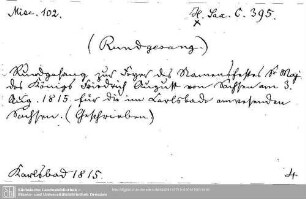 Misc. 102.
H. Sax. C. 395.
x
(Rundgesang.)
Rundgesang zur Feyer des Namensfestes Sr Maj.
des Königs Friedrich August von Sachsen am 3.
Aug. 1815. für die im Carlsbade anwesenden
Sachsen. (Geschrieben)
Karlsbad 1815.
4.